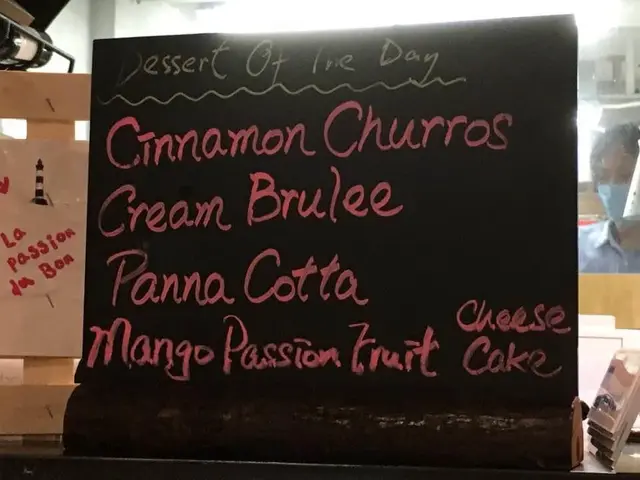 Dessert Of The Day
Cinnamon Churros
Cream Brulee
Panna Cotta
Mango Passion Fruit Cheese Cake
La
Passion
du Bon